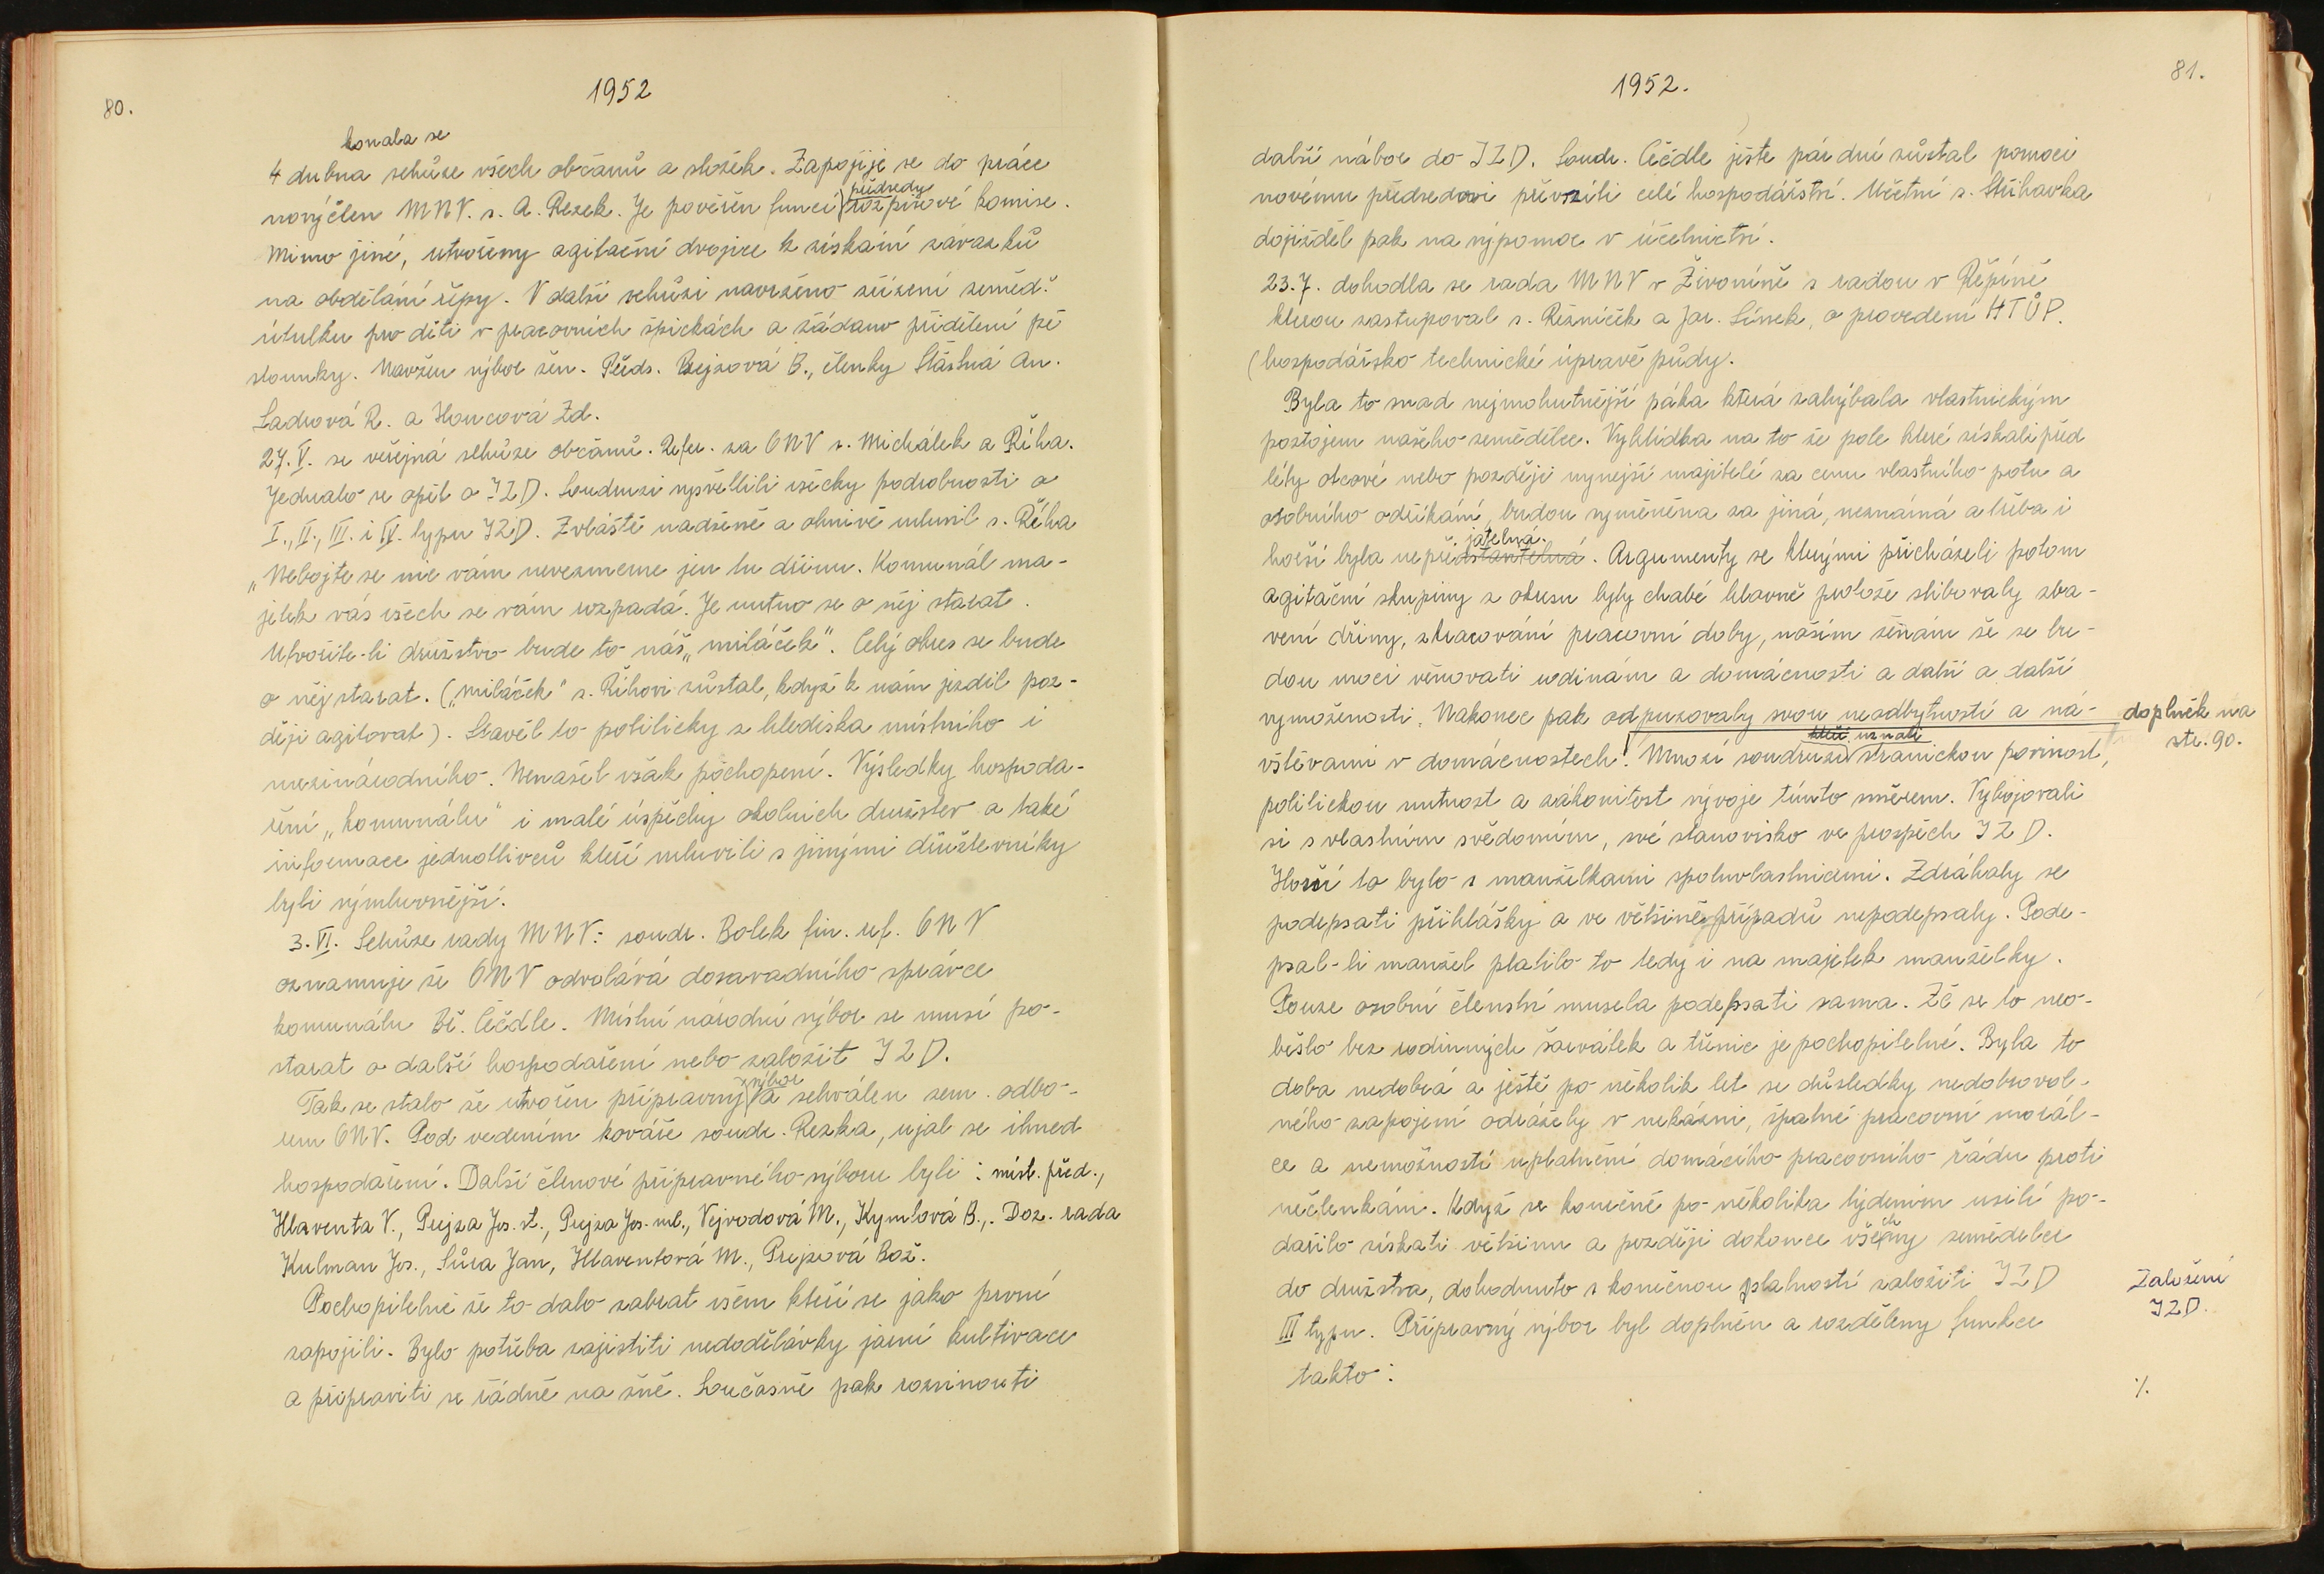 80.
1952
konala se
4 dubna schůze všech občanů a složek. Zapojije se do práce
předsedy
nový člen MNV. s. A. Rezek. Je pověřen funcí rozpisové komise.
Mimo jiné, utvořeny agitační dvojice k získání závazků
na obdělání řepy. V další schůzi navrženo zřízení zeměd.
útulku pro děti v pracovních špičkách a žádano přidělení pě
stounky. Navržen výbor žen. Před. Prejzová B., členky Šťastná An.
Ladrová R. a Honcová Zd.
27.V. se veřejná schůze občanů. Refer. za ONV s. Michálek a Říha.
Jednalo se opět o JZD. Soudruzi vysvětlili všecky podrobnosti o
I., II., III. i IV. typu JZD. Zvláště nadšeně a ohnivě mluvil s. Říha
„Nebojte se nic vám nevezmeme jen tu dřinu. Komunál ma-
jetek vás všech se vám rozpadá. Je nutno se o něj starat.
Utvoříte-li družstvo bude to náš „miláček“. Celý okres se bude
o něj starat. („Miláček“ s. Říhovi zůstal, když k nám jezdil poz-
ději agitovat). Stavěl to politicky z hlediska místního i
mezinárodního. Nenašel však pochopení. Výsledky hospoda-
ření „komunálu“ i malé úspěchy okolních družstev a také
informace jednotlivců kteří mluvili s jinými družstevníky
byli výmluvnější.
3.VI. Schůze rady MNV: soudr. Bolek fin. ref. ONV
oznamuje že ONV odvolává dosavadního správce
komunálu Bř. Céčdle. Místní národní výbor se musí po-
starat o další hospodaření nebo založit JZD.
výbor
Tak se stalo že utvořen přípravný a schválen zem. odbo-
rem ONV. Pod vedením kováře soudr. Rezka, ujal se ihned
hospodaření. Další členové přípravného výboru byli: míst. před.,
Hlaventa V., Prejza Jos. st., Prejza Jos. ml., Vejvodová M., Kymlová B.,. Doz. rada
Kulman Jos., Sůra Jan, Hlaventová M., Prejzová Bož.
Pochopitelně že to dalo zabrat všem kteří se jako první
zapojili. Bylo potřeba zajistiti nedodělávky jarní kultivace
a připraviti se řádně na žně. Současně pak rozvinouti
81.
1952.
další nábor do JZD. Soudr. Céčdle ješte pár dní zůstal pomoci
novému předsedovi převzíti celé hospodářství. Učetní s. Střihavka
dojížděl pak na výpomoc v účetnictví.
23.7. dohodla se rada MNV v Živoníně s radou v Řepíně
kterou zastupoval s. Řezníček a Jar. Línek, o provedení HTÚP.
(hospodářsko technické úpravě půdy.
Byla to snad nejmohutnější páka která zahýbala vlastnickým
postojem našeho zemědělce. Vyhlídka na to že pole které získali před
léty otcové nebo později nynejší majitelé za cenu vlastního potu a
osobního odříkání, budou vyměněna za jiná, neznámá a třeba i
jatelná.
horší byla nepředstavitelná. Argumenty se kterými přicházeli potom
agitační skupiny z okresu byly chabé hlavně protože slibovaly zba-
vení dřiny, zkracování pracovní doby, našim ženám že se bu-
dou moci věnovati rodinám a domácnosti a další a další
vymoženosti. Nakonec pak odpuzovaly svou neodbytností a ná-
doplněk na
str. 90.
kteří uznali
vštěvami v domácnostech! Mnozí soudruzi stranickou povinost,
politickou nutnost a zákonitost vývoje tímto směrem. Vybojovali
si s vlastním svědomím, své stanovisko ve prospěch JZD.
Horší to bylo s manželkami spoluvlastnicemi. Zdráhaly se
podepsati přihlášky a ve většině případů nepodepsaly. Pode-
psal-li manžel platilo to tedy i na majetek manželky.
Pouze osobní členství musela podepsati sama. Že se to neo-
bešlo bez rodinných šarvátek a třenic je pochopitelné. Byla to
doba nedobrá a ještě po několik let se důsledky nedobrovol-
ného zapojení odrážely v nekázni, špatné pracovní morál-
ce a nemožností uplatnění domácího pracovního řádu proti
nečlenkám. Když se konečně po několika týdením usilí po-
dařilo získati většinu a později dokonce všechny zemědelce
do družstva, dohodnuto s konečnou platností založiti JZD
Založení
JZD.
III typu. Přípravný výbor byl doplněn a rozděleny funkce
takto:
./.